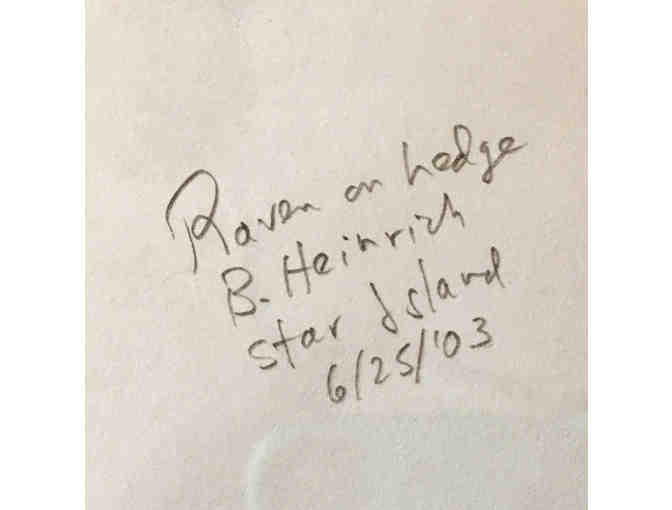 Raven on hedge
B. Heinrich
Star Island
6/25/'03